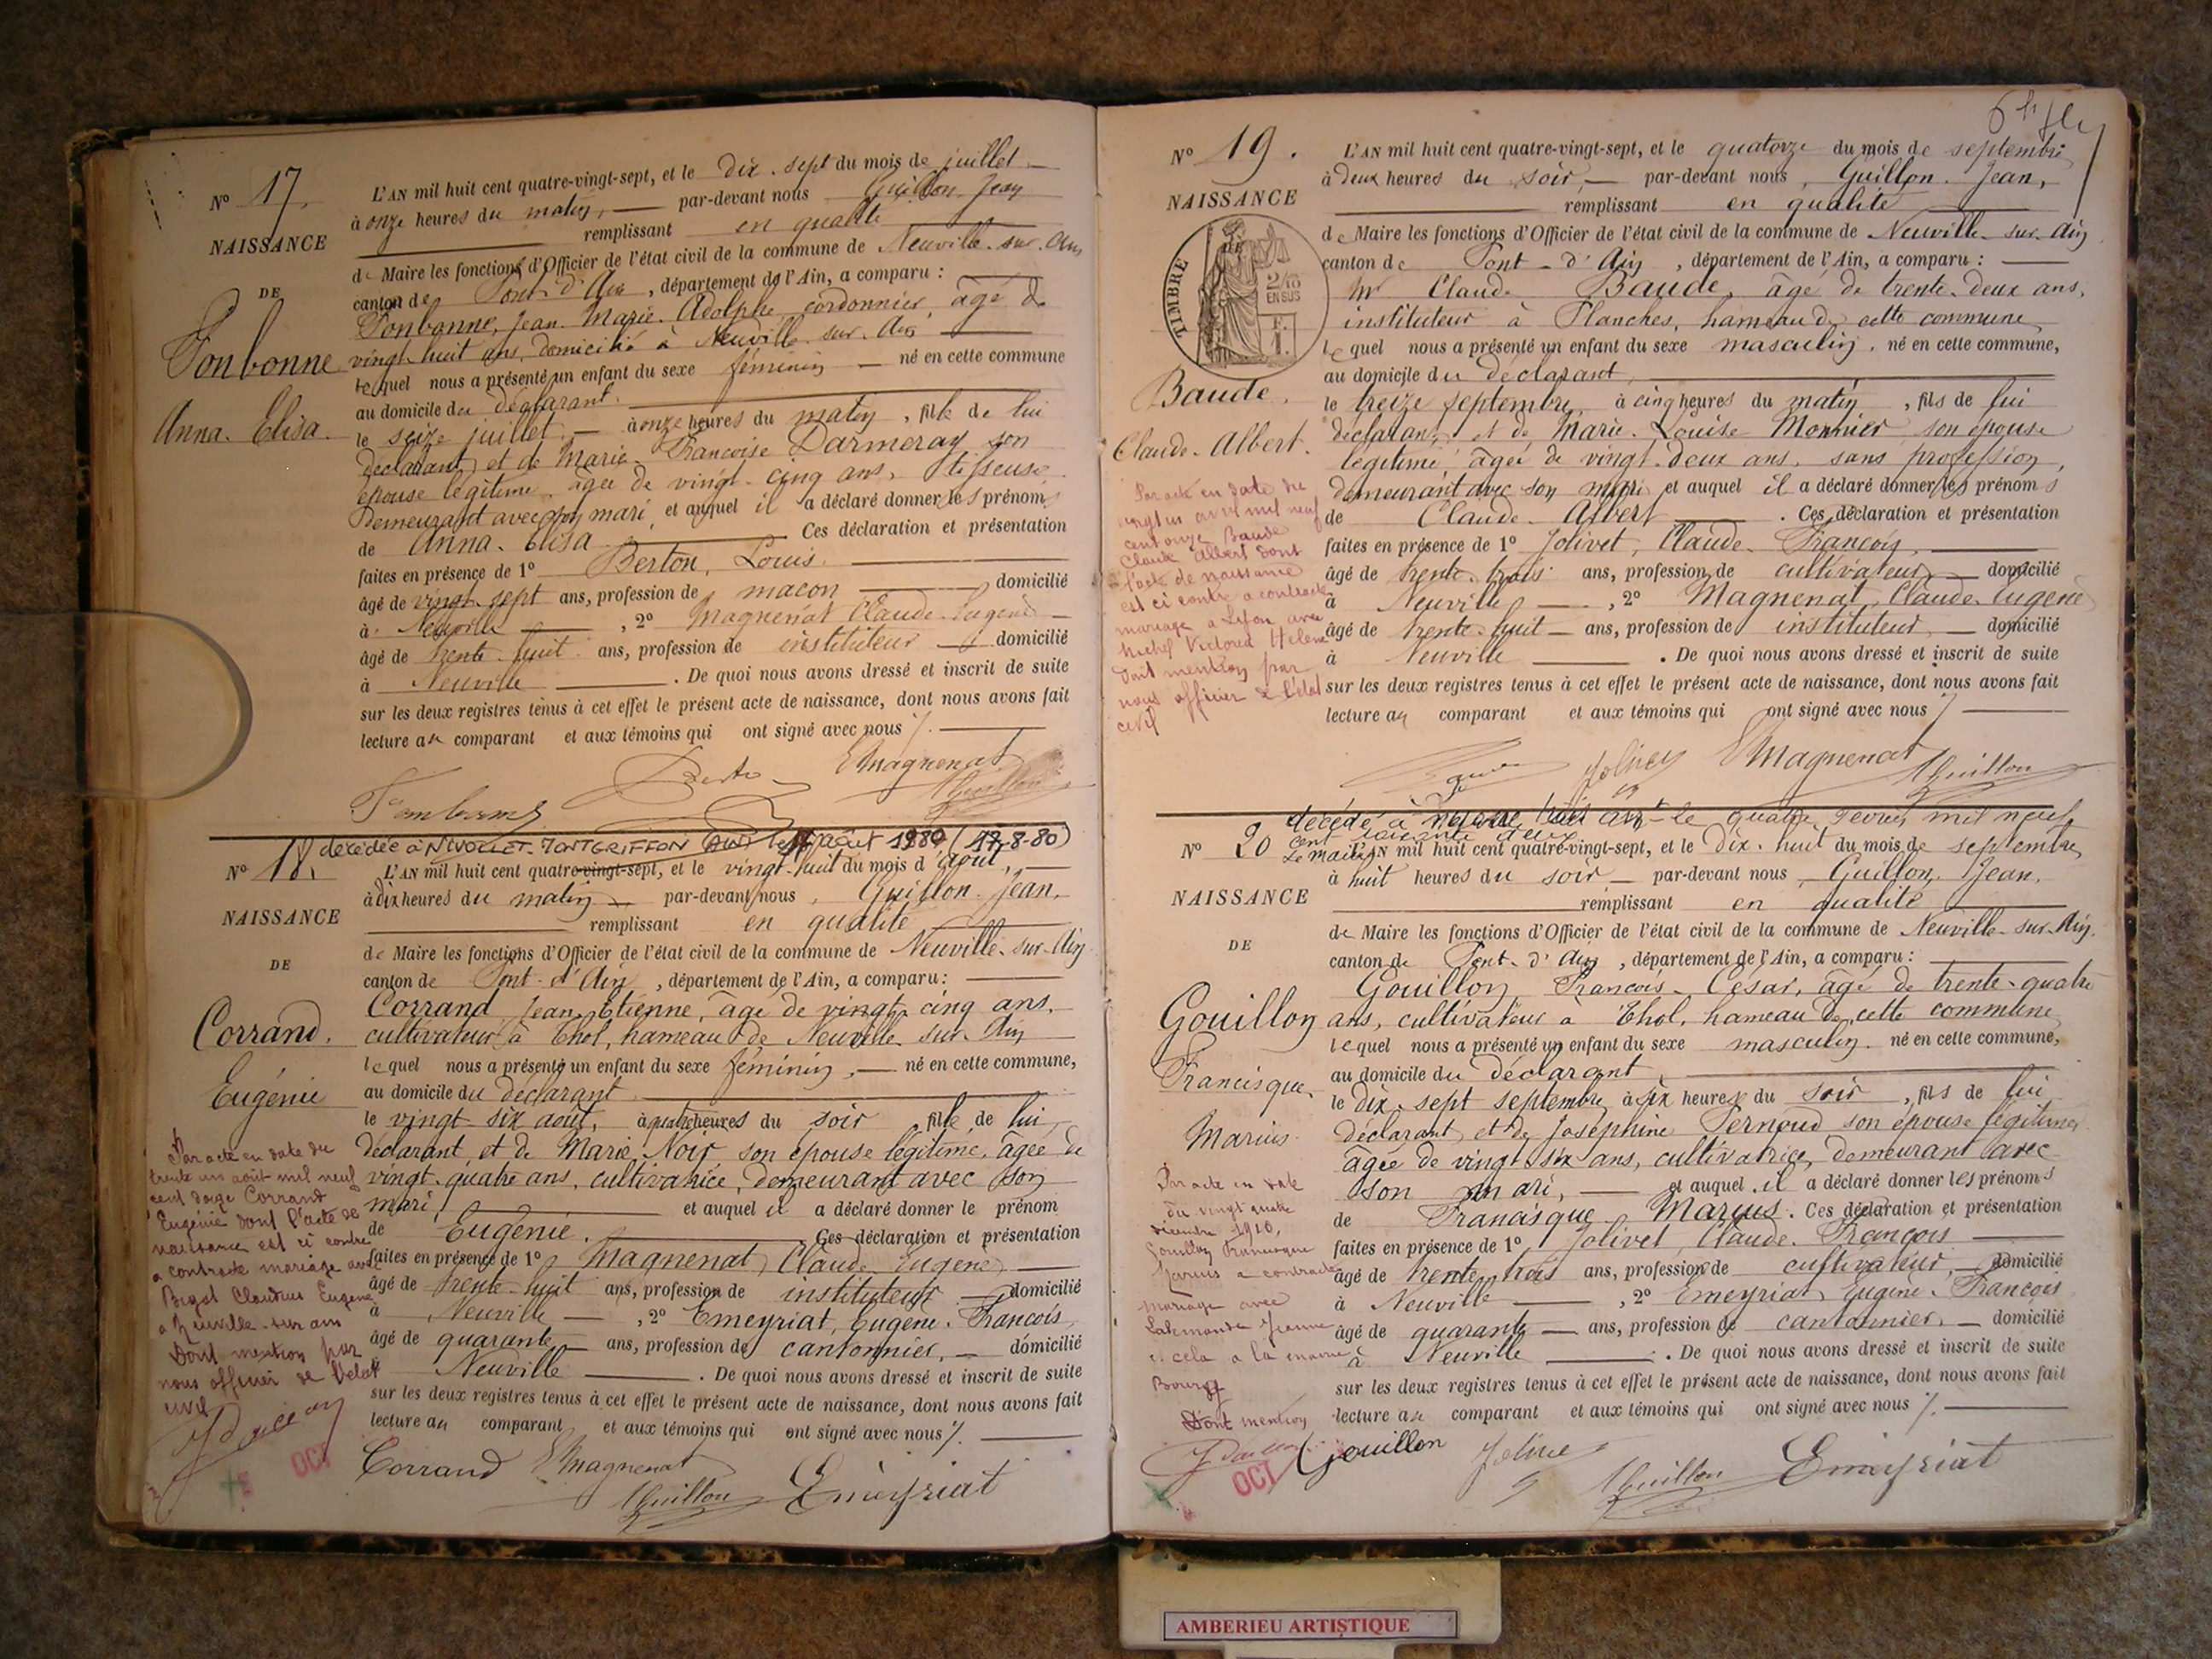 N° 17.
NAISSANCE
DE
Fonbonne
Anna. Elisa.
L'AN mil huit cent quatre-vingt-sept, et le dix-sept du mois de juillet
à onze heures du matin, par-devant nous Guillon Jean
remplissant en qualité
de Maire les fonctions d'Officier de l'état civil de la commune de Neuville-sur-Ain
canton de Pont-d'Ain, département de l'Ain, a comparu :
Fonbonne, Jean-Marie-Adolphe, cordonnier, âgé de
vingt-huit ans, domicilié à Neuville-sur-Ain
lequel nous a présenté un enfant du sexe féminin né en cette commune
au domicile du déclarant.
le seize juillet à onze heures du matin, fille de lui
déclarant et de Marie-Françoise Darmeray son
épouse légitime, âgée de vingt-cinq ans, tisseuse,
demeurant avec son mari, et auquel il a déclaré donner les prénoms
de Anna-Elisa. Ces déclaration et présentation
faites en présence de 1° Berton, Louis.
âgé de vingt-sept ans, profession de maçon domicilié
à Neuville, 2° Magnenat Claude-Eugène
âgé de trente-huit ans, profession de instituteur domicilié
à Neuville. De quoi nous avons dressé et inscrit de suite
sur les deux registres tenus à cet effet le présent acte de naissance, dont nous avons fait
lecture au comparant et aux témoins qui ont signé avec nous
EMagnenat
Guillon
décédée à NIVOLLET-MONTGRIFFON (AIN) le août 1980 (17-8-80)
N° 18.
NAISSANCE
DE
Corrand.
Eugénie
Par acte en date du
trente un août mil neuf
cent douze Corrand
Eugénie dont l'acte de
naissance est ci contre
a contracté mariage avec
Claudius Eugène
à Neuville-sur-ain
Dont mention par
nous officier de l'état
civil
OCT
L'AN mil huit cent quatre-vingt-sept, et le vingt-huit du mois d'août,
à dix heures du matin par-devant nous, Guillon Jean,
remplissant en qualité
de Maire les fonctions d'Officier de l'état civil de la commune de Neuville-sur-Ain
canton de Pont-d'Ain, département de l'Ain, a comparu :
Corrand, Jean-Etienne, âgé de vingt-cinq ans,
cultivateur à Thol, hameau de Neuville-sur-Ain
lequel nous a présenté un enfant du sexe féminin, né en cette commune,
au domicile du déclarant
le vingt-six août, à quatre heures du soir fille de lui
déclarant et de Marie Noir son épouse légitime, âgée de
vingt-quatre ans, cultivatrice, demeurant avec son
mari, et auquel il a déclaré donner le prénom
de Eugénie. Ces déclaration et présentation
faites en présence de 1° Magnenat, Claude-Eugène
âgé de trente-huit ans, profession de instituteur domicilié
à Neuville, 2° Emeyriat, Eugène-François,
âgé de quarante ans, profession de cantonnier, domicilié
à Neuville. De quoi nous avons dressé et inscrit de suite
sur les deux registres tenus à cet effet le présent acte de naissance, dont nous avons fait
lecture au comparant, et aux témoins qui ont signé avec nous
Corrand EMagnenat
Guillon Emeyriat
N° 19.
NAISSANCE
TIMBRE
2/10
EN SUS
Baude.
Claude-Albert.
Par acte en date du
vingt un avril mil neuf
cent onze Baude
Claude Albert dont
l'acte de naissance
est ci contre a contracté
mariage à Lyon avec
Michel Victoria Hélène
Dont mention par
nous officier de l'état
civil
L'AN mil huit cent quatre-vingt-sept, et le quatorze du mois de septembre
à deux heures du soir, par-devant nous, Guillon Jean,
remplissant en qualité
de Maire les fonctions d'Officier de l'état civil de la commune de Neuville-sur-Ain
canton de Pont-d'Ain, département de l'Ain, a comparu :
Mr Claude Baude, âgé de trente-deux ans,
instituteur à Planches, hameau de cette commune
lequel nous a présenté un enfant du sexe masculin. né en cette commune,
au domicile du déclarant,
le treize septembre, à cinq heures du matin, fils de lui
déclarant et de Marie-Louise Monnier son épouse
légitime, âgée de vingt-deux ans, sans profession,
demeurant avec son mari et auquel il a déclaré donner les prénoms
de Claude-Albert. Ces déclaration et présentation
faites en présence de 1° Jolivet, Claude-François,
âgé de trente-trois ans, profession de cultivateur domicilié
à Neuville, 2° Magnenat, Claude-Eugène
âgé de trente-huit ans, profession de instituteur domicilié
à Neuville. De quoi nous avons dressé et inscrit de suite
sur les deux registres tenus à cet effet le présent acte de naissance, dont nous avons fait
lecture au comparant et aux témoins qui ont signé avec nous
EMagnenat Guillon
décédé à le quatre février mil neuf
cent soixante deux
Le maire
N° 20
NAISSANCE
DE
Gouillon
Francisque.
Marius.
Par acte en date
du vingt quatre
décembre 1910,
Gouillon Francisque
Marius a contracté
mariage avec
Jeanne
et cela à la mairie
Bourg
Dont mention
OCT
L'AN mil huit cent quatre-vingt-sept, et le dix-huit du mois de septembre
à huit heures du soir par-devant nous, Guillon Jean,
remplissant en qualité
de Maire les fonctions d'Officier de l'état civil de la commune de Neuville-sur-Ain,
canton de Pont-d'Ain, département de l'Ain, a comparu :
Gouillon, François-César, âgé de trente-quatre
ans, cultivateur à Thol, hameau de cette commune
lequel nous a présenté un enfant du sexe masculin. né en cette commune,
au domicile du déclarant,
le dix-sept septembre à six heures du soir, fils de lui
déclarant et de Joséphine Pernoud son épouse légitime,
âgée de vingt-six ans, cultivatrice, demeurant avec
son mari, et auquel il a déclaré donner les prénoms
de Francisque Marius. Ces déclaration et présentation
faites en présence de 1° Jolivet, Claude-François
âgé de trente-trois ans, profession de cultivateur, domicilié
à Neuville, 2° Emeyriat Eugène-François
âgé de quarante ans, profession de cantonnier, domicilié
à Neuville. De quoi nous avons dressé et inscrit de suite
sur les deux registres tenus à cet effet le présent acte de naissance, dont nous avons fait
lecture au comparant et aux témoins qui ont signé avec nous
Gouillon Guillon Emeyriat
AMBERIEU ARTISTIQUE